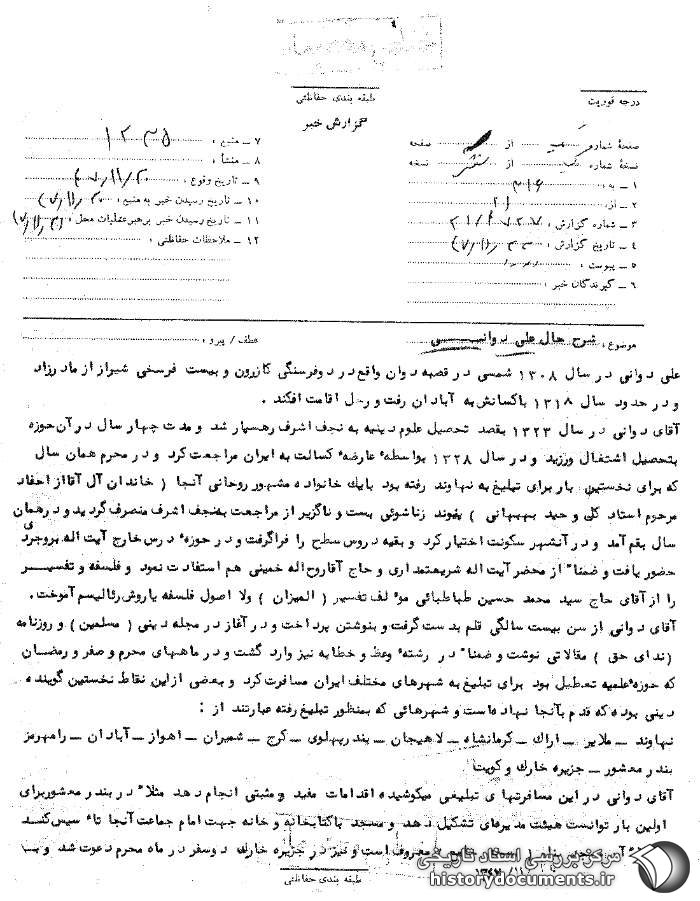 طبقه بندی حفاظتی
درجه فوریت
گزارش خبر
صفحهٔ شماره از صفحه
نسخهٔ شماره از نسخه
۱ ـ به : ۳۱۶
۲ ـ از: ۲۱
۳ ـ شماره گزارش :
۴ ـ تاریخ گزارش :
۵ ـ پیوست :
۶ ـ گیرندگان خبر :
۷ ـ منبع :
۸ ـ منشأ :
۹ ـ تاریخ وقوع :
۱۰ ـ تاریخ رسیدن خبر به منبع :
۱۱ ـ تاریخ رسیدن خبر برهبر عملیات محل :
۱۲ ـ ملاحظات حفاظتی :
موضوع : شرح حال علی دوانی
عطف / پیرو :
علی دوانی در سال ۱۳۰۸ شمسی در قصبه دوان واقع در دوفرسنگی کازرون و بیست فرسخی شیراز از مادر زاد
و در حدود سال ۱۳۱۸ باکسانش به آبادان رفت و رحل اقامت افکند .
آقای دوانی در سال ۱۳۲۳ بقصد تحصیل علوم دینیه به نجف اشرف رهسپار شد و مدت چهار سال در آن حوزه
بتحصیل اشتغال ورزید و در سال ۱۳۲۸ بواسطهٔ عارضهٔ کسالت به ایران مراجعت کرد و در محرم همان سال
که برای نخستین بار برای تبلیغ به نهاوند رفته بود بایک خانواده مشهور روحانی آنجا ( خاندان آل آقا از احفاد
مرحوم استاد کل وحید بهبهانی ) پیوند زناشوئی بست و ناگزیر از مراجعت به نجف اشرف منصرف گردید و در همان
سال بقم آمد و در آنشهر سکونت اختیار کرد و بقیه دروس سطح را فراگرفت و در حوزهٔ درس خارج آیت اله بروجردی
حضور یافت و ضمناً از محضر آیت اله شریعتمداری و حاج آقا روح اله خمینی هم استفادت نمود و فلسفه و تفسیر
را از آقای حاج سید محمد حسین طباطبائی مؤلف تفسیر ( المیزان ) ولا اصول فلسفه یا روش رئالیسم آموخت .
آقای دوانی از سن بیست سالگی قلم بدست گرفت و بنوشتن پرداخت و در آغاز در مجله دینی ( مسلمین ) و روزنامه
(ندای حق ) مقالاتی نوشت و ضمناً در رشتهٔ وعظ و خطابه نیز وارد گشت و در ماههای محرم و صفر و رمضان
که حوزهٔ علمیه تعطیل بود برای تبلیغ به شهرهای مختلف ایران مسافرت کرد و بعضی از این نقاط نخستین گوینده
دینی بوده که قدم بآنجا نهاده است و شهرهائی که بمنظور تبلیغ رفته عبارتند از :
نهاوند ـ ملایر ـ اراک ـ کرمانشاه ـ لاهیجان ـ بندر پهلوی ـ کرج ـ شمیران ـ اهواز ـ آبادان ـ رامهرمز
بندر معشور ـ جزیره خارک و کویت
آقای دوانی در این مسافرتهای تبلیغی میکوشیده اقدامات مفید و مثبتی انجام دهد مثلاً در بندر معشور برای
اولین بار توانست هیئت مدیره‌ای تشکیل دهد و مسجد با کتابخانه و خانه جهت امام جماعت آنجا تأسیس کند
معروف است و نیز در جزیره خارک دوسفر در ماه محرم دعوت شد و
طبقه بندی حفاظتی
مرکز بررسی اسناد تاریخی
historydocuments.ir